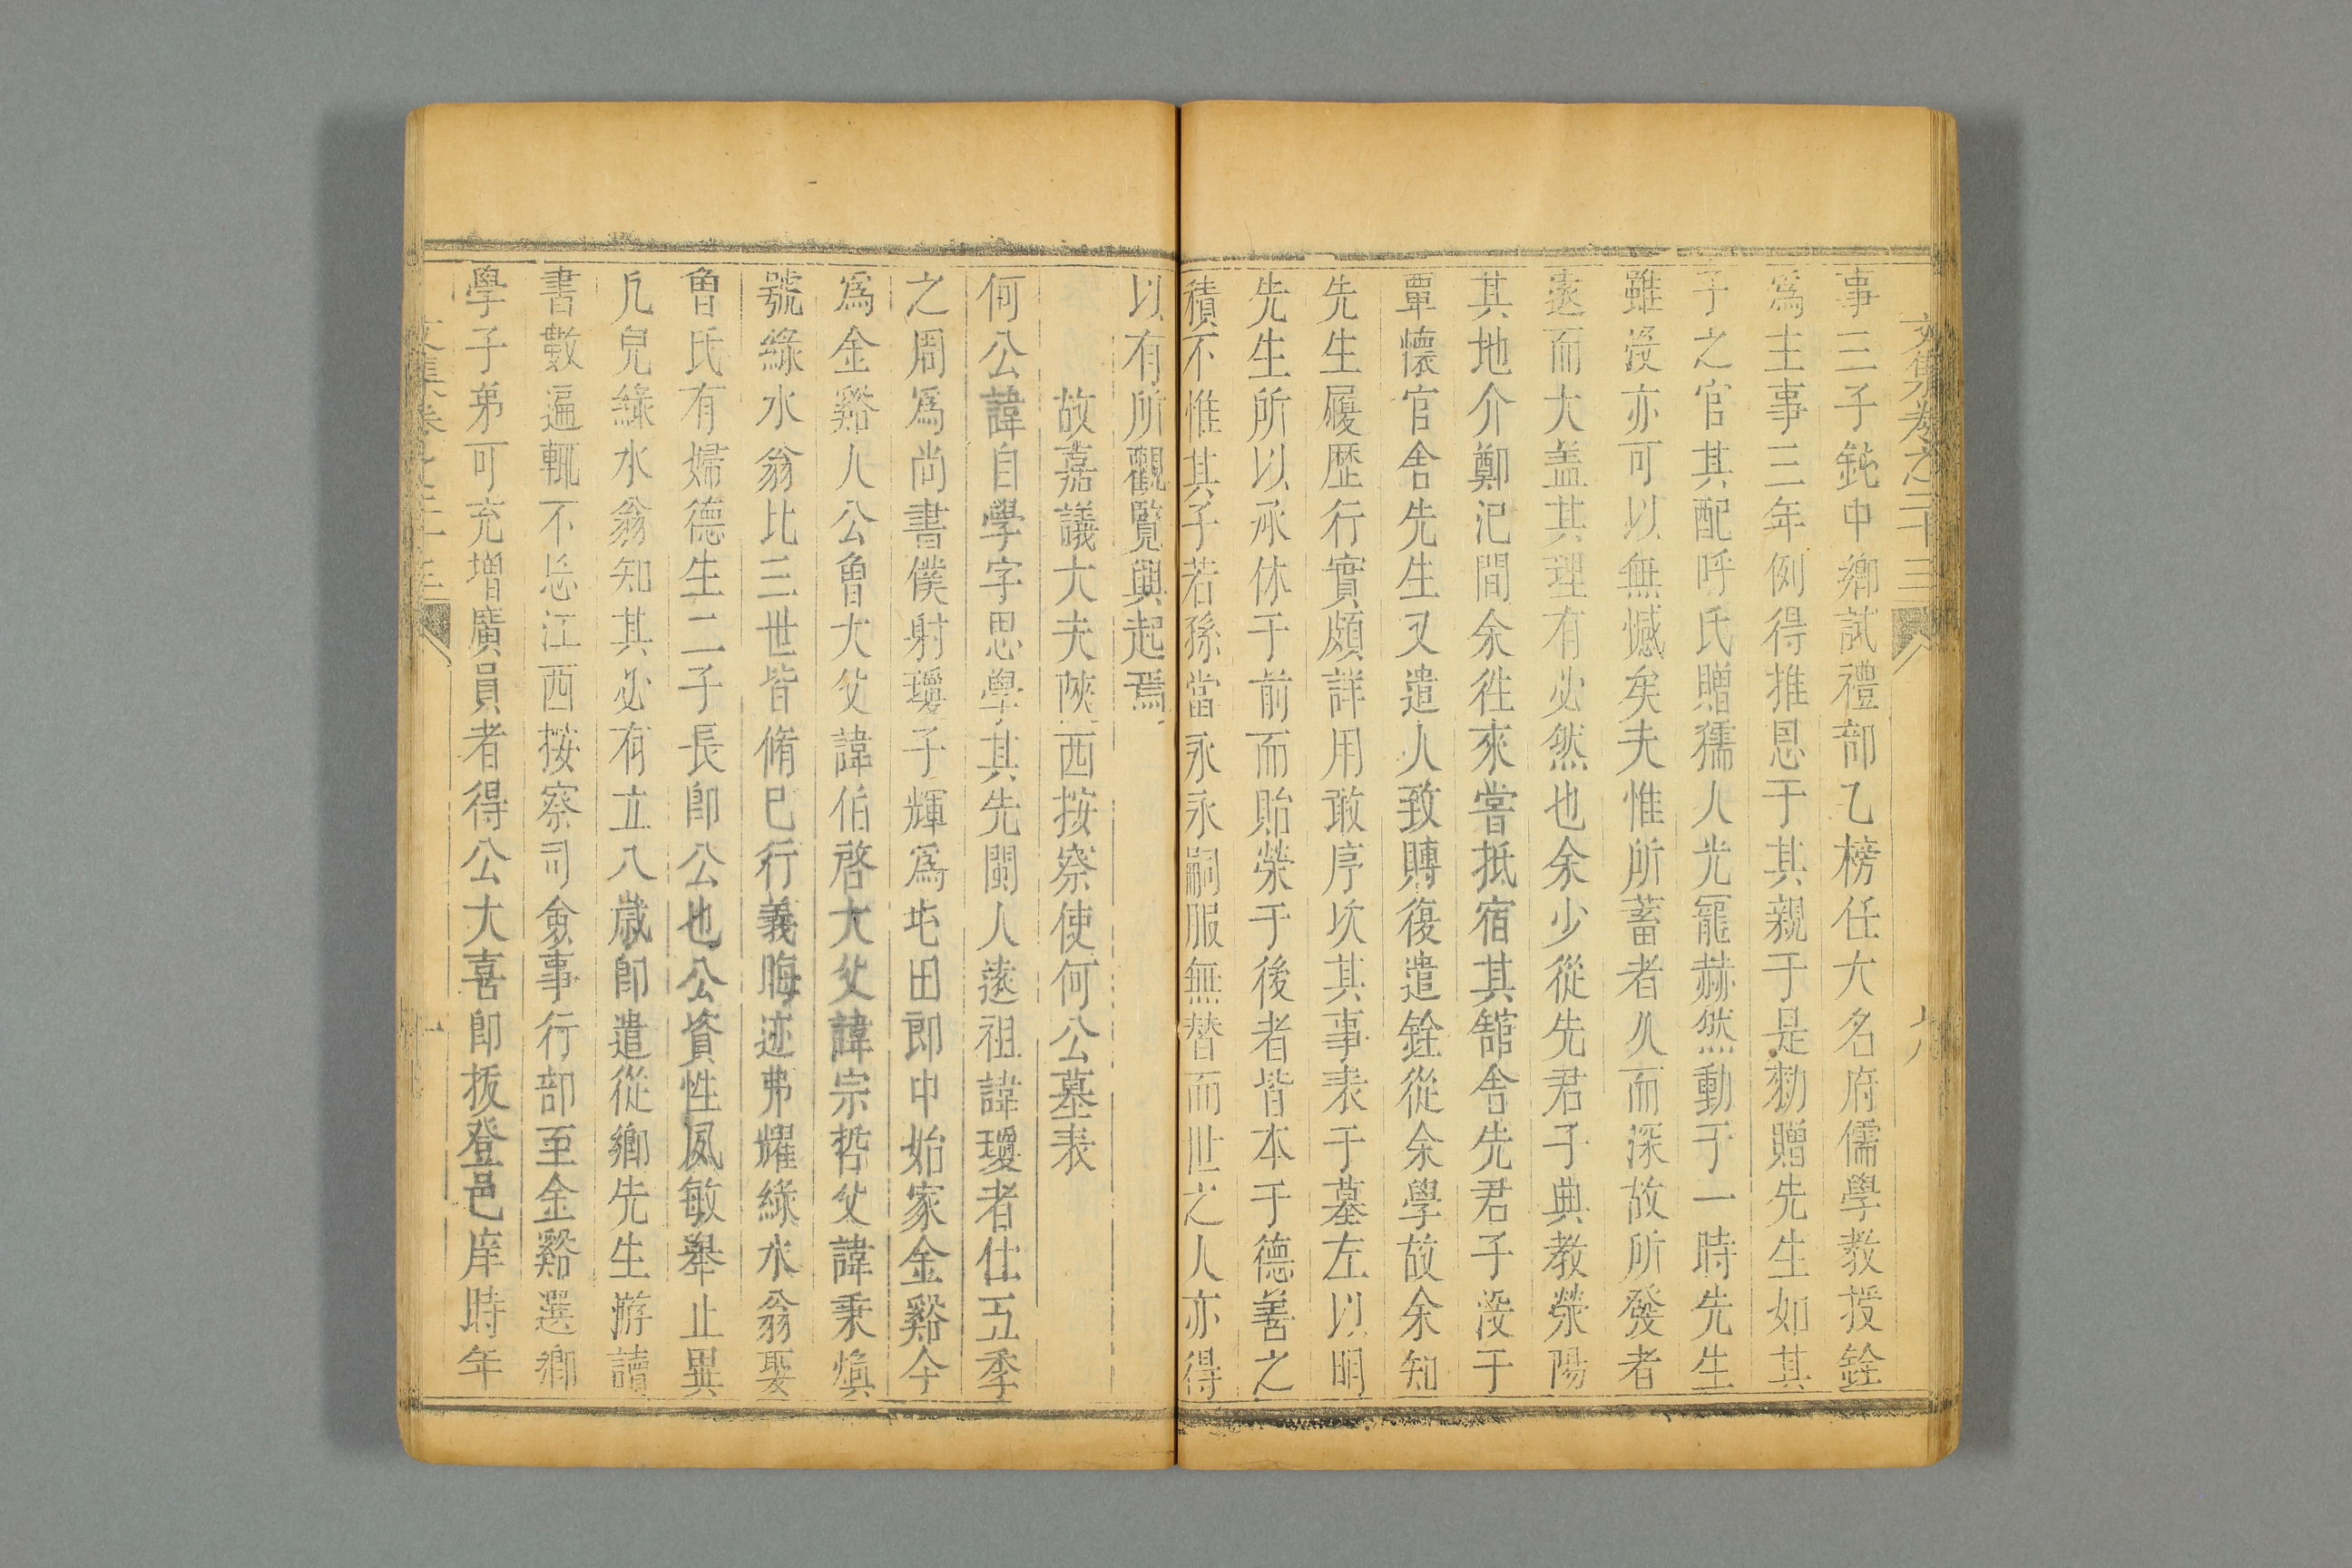 文集卷之二十三
事三子鈍中鄉試禮部乙榜任大名府儒學教授銓
爲主事三年例得推恩于其親于是勑贈先生如其
子之官其配呼氏贈孺人光寵赫然動于一時先生
雖沒亦可以無憾矣夫惟所蓄者久而深故所發者
遠而大盖其理有必然也余少從先君子典教滎陽
其地介鄭汜間余徃來嘗抵宿其舘舍先君子沒于
覃懷官舍先生又遣人致賻復遣銓從余學故余知
先生履歷行實頗詳用敢序次其事表于墓左以明
先生所以承休于前而貽榮于後者皆本于德善之
積不惟其子若孫當永永嗣服無替而世之人亦得
以有所觀覧與起焉
故嘉議大夫陜西按察使何公墓表
何公諱自學字思學其先閩人遠祖諱瓊者仕五季
之周爲尚書僕射瓊子輝爲屯田郎中始家金谿今
爲金谿人公曾大父諱伯啓大父諱宗哲父諱秉煥
號綠水翁比三世皆脩已行義晦迹弗耀綠水翁娶
曾氏有婦德生二子長即公也公資性夙敏舉止異
凢兒綠水翁知其必有立八歲即遣從鄉先生游讀
書數遍輒不忘江西按察司僉事行部至金谿選鄉
學子弟可充增廣員者得公大喜即拔登邑庠時年
文集卷之二十三